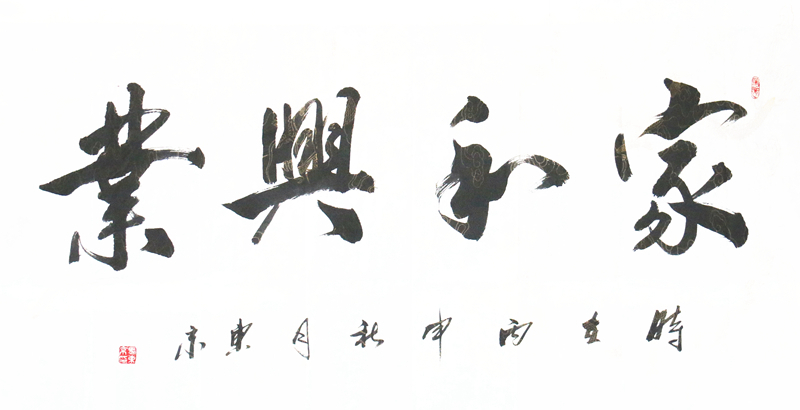 家和興業
時在丙申秋月東京